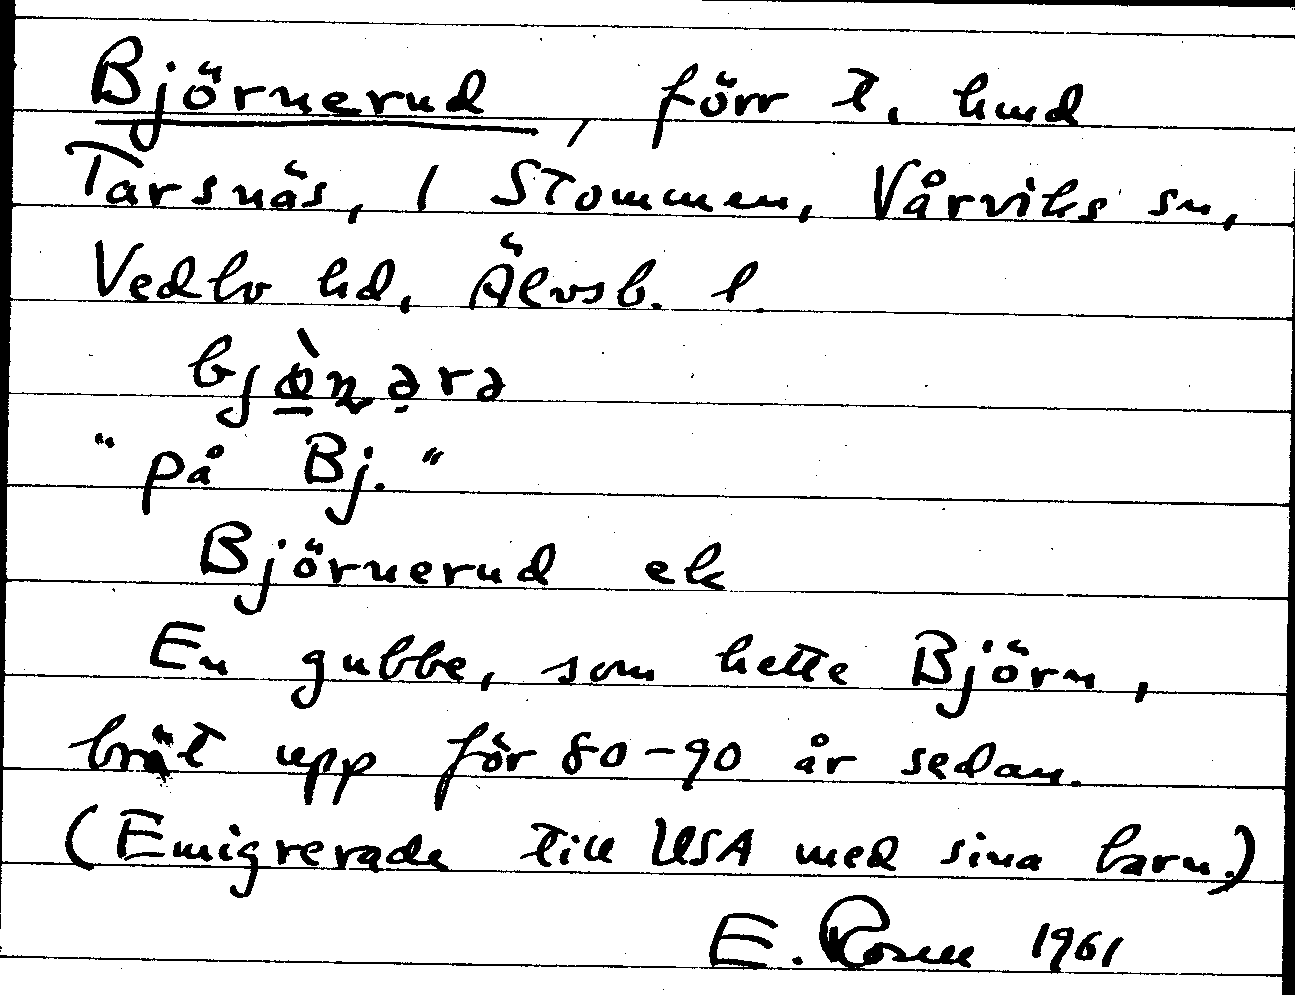 Björnerud, förr t. hmd
Tarsnäs, 1 Stommen, Vårviks sn,
Vedbo hd, Älvsb. l.
"på Bj."
Björnerud ek
En gubbe, som hette Björn,
bröt upp för 80-90 år sedan.
(Emigrerade till USA med sina barn.)
E. Rosell 1961